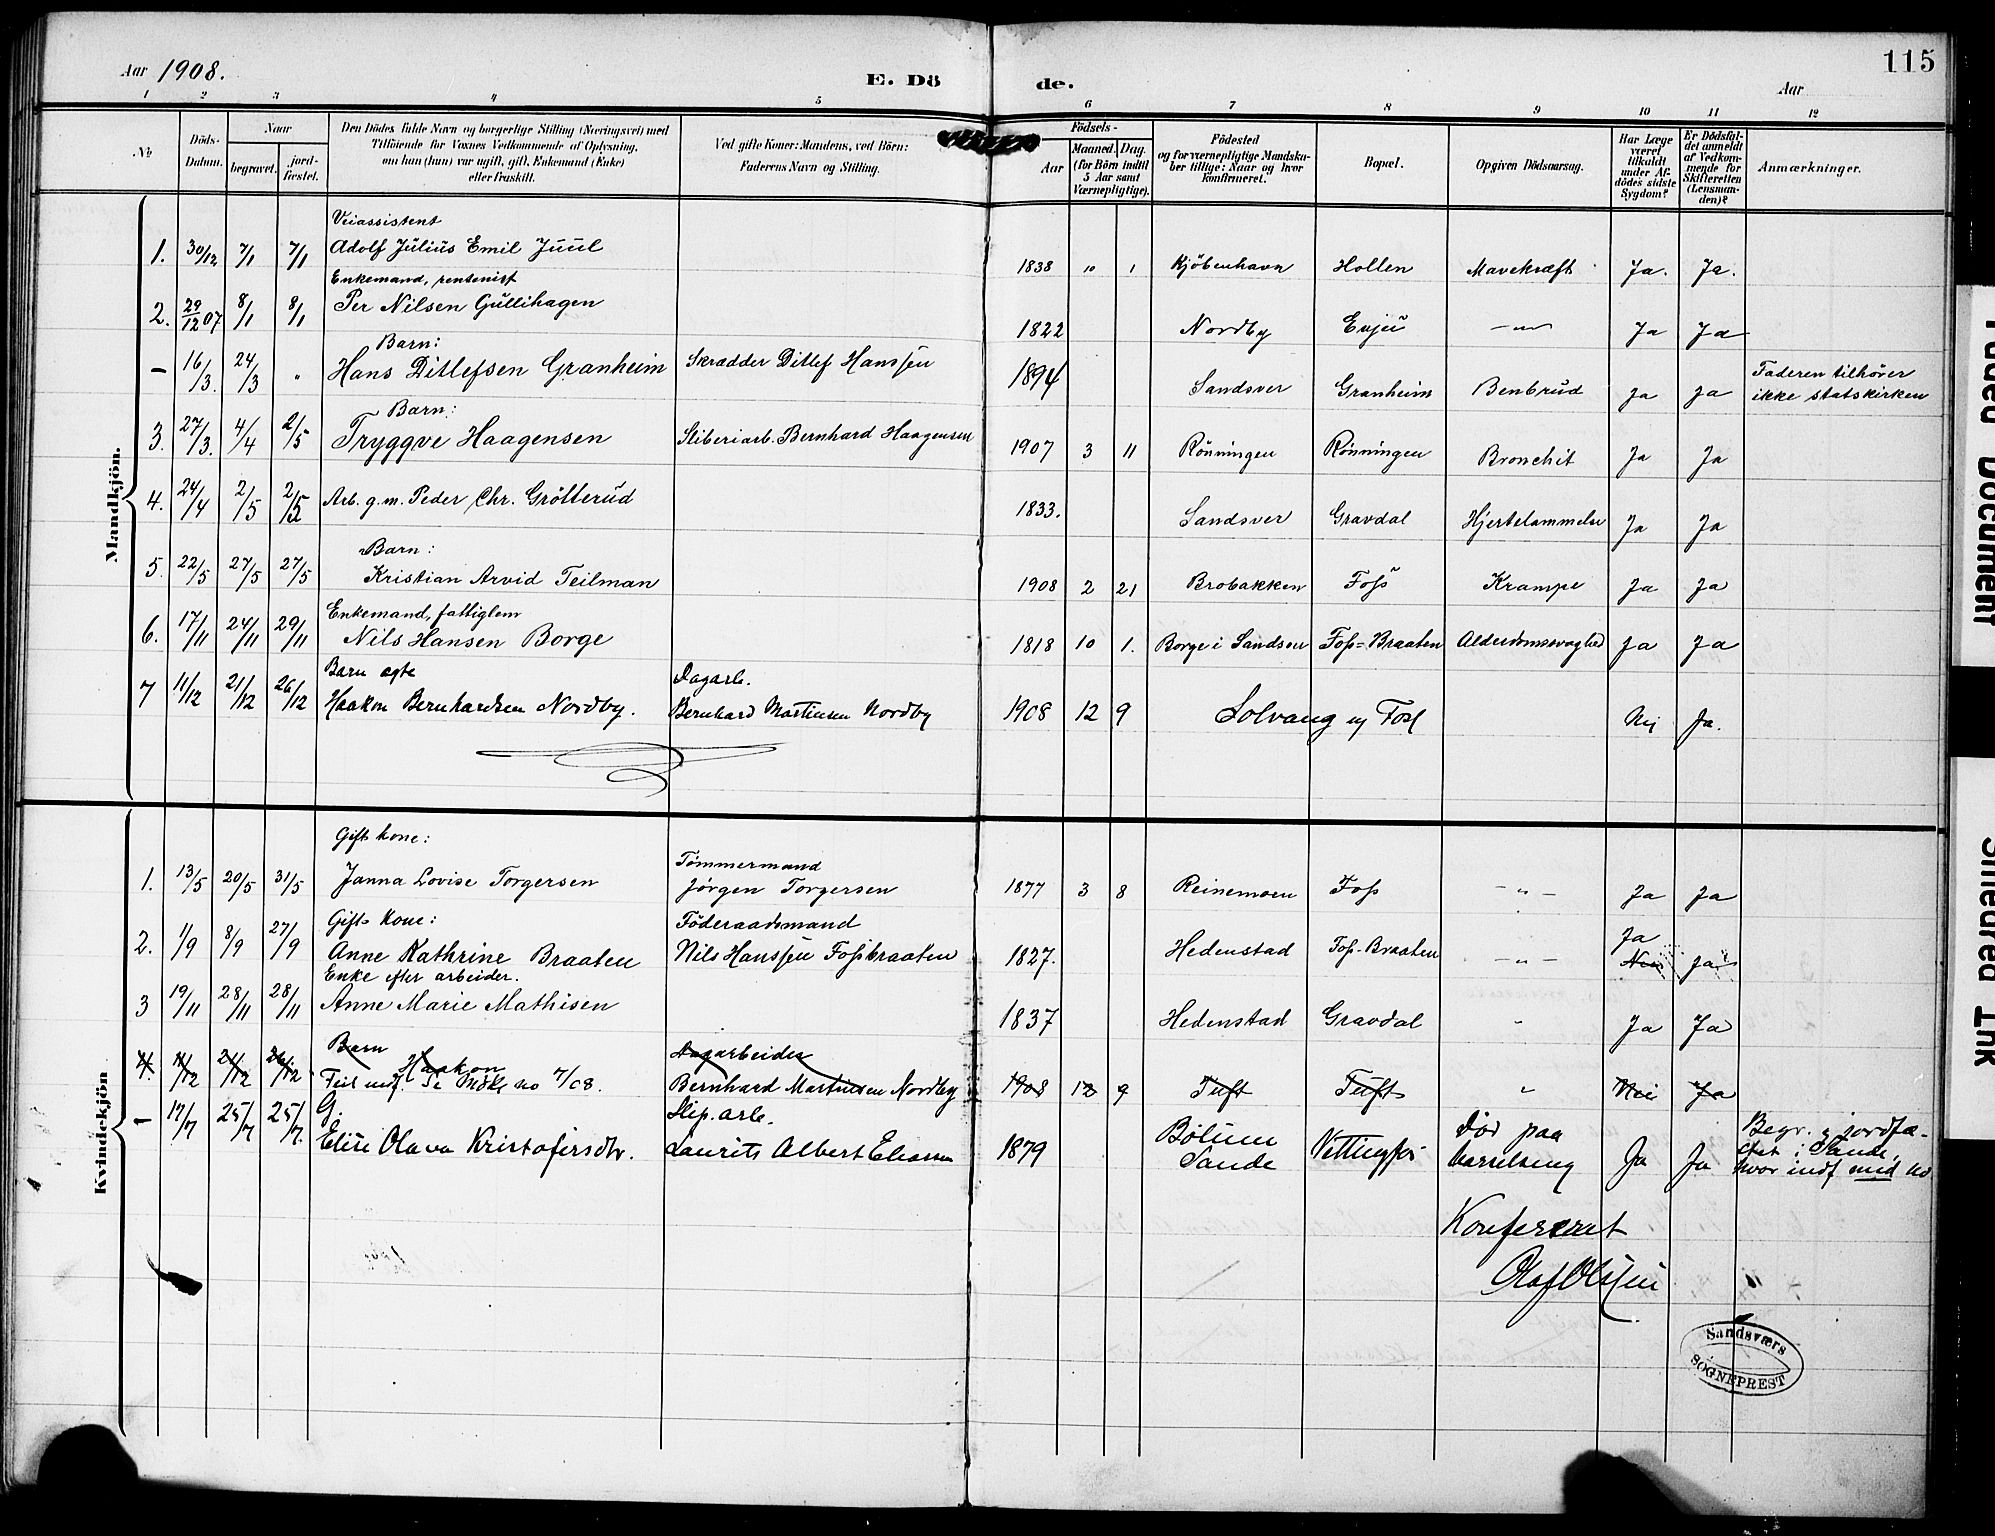 Aar 1908. E. Dö de. Aar 115
1 2 3 4 5 6 7 8 9 10 11 12
No
Döds-Datum.
Naar
begravet.
jord-fæstet.
Den Dödes fulde Navn og borgerlige Stilling (Næringsvei) med
Tilföiende for Voxnes Vedkommende af Oplysning,
om han (hun) var ugift, gift, Enkemand (Enke)
eller fraskilt.
Ved gifte Koner: Mandens, ved Börn:
Faderens Navn og Stilling.
Födsels-
Aar
Maaned. Dag.
(for Börn indtil
5 Aar samt
Værnepligtige).
Födested
og for værnepligtige Mandska-
ber tillige: Naar og hvor
konfirmeret.
Bopæl.
Opgiven Dödsaarsag.
Har Læge
været
tilkaldt
under Af-
dödes sidste
Sygdom?
Er Dödsfal-
det anmeldt
af Vedkom-
mende for
Skifteretten
(Lensman-
den)?
Anmærkninger.
Mandkjön.
Veiassistent
1. 30/12 7/1 7/1 Adolf Julius Emil Juul 1838 10 1 Kjöbenhavn Hollen Mavekræft Ja. Ja.
Enkemand, rentenist
2. 29/12 07 8/1 8/1 Per Nilsen Gullihagen 1822 Nordby Evju —"— Ja Ja
Barn:
– 16/3. 24/3 " Hans Ditlefsen Granheim Skrædder Ditlef Hanssen 1894 Sandsver Granheim Benbrud Ja Ja Faderen tilhörer
ikke statskirken
Barn:
3. 27/3. 4/4 2/5 Tryggve Haagensen Sliberiarb. Bernhard Haagensen 1907 3 11 Rönningen Rönningen Bronchit Ja Ja
4. 24/4 2/5 2/5 Arb. g.m. Peder Chr. Grötterud 1833. Sandsver Gravdal Hjertelammelse Ja Ja
Barn:
5. 22/5 27/5 27/5 Kristian Arvid Teilman 1908 2 21 Brobakken Foss Krampe Ja Ja
Enkemand, fattiglem
6. 17/11 24/11 29/11 Nils Hansen Borge 1818 10 1. Borge i Sandsver Fos-Braaten Alderdomssvaghed Ja Ja
Barn ægte Dagarb.
7 11/12 21/12 26/12 Haakon Bernhardsen Nordby. Bernhard Martinsen Nordby 1908 12 9 Solvang u/ Foss Nei Ja.
Kvindekjön
Gift kone: Tömmermand
1. 13/5 20/5 31/5 Janna Lovise Torgersen Jörgen Torgersen 1877 3 8 Reinemoen Foss —"— Ja Ja
Gift kone: Föderaadsmand
2. 1/9 8/9 27/9 Anne Kathrine Braaten Nils Hanssen Fossbraaten 1827. Hedenstad Fos-Braaten —"— Ja Nei Ja
Enke efter arbeider.
3 19/11 28/11 28/11 Anne Marie Mathisen 1837 Hedenstad Gravdal " Ja Ja
Barn Haakon Dagarbeider
4. 11/12 21/12 26/12 Feil indf. Se Mdkj. no 7/08. Bernhard Martinsen Nordby 1908 12 9 Tuft Tuft " Nei Ja
G. Slip.arb.
– 17/7 25/7 25/7. Elise Olava Kristofersdtr. Laurits Albert Eliassen 1879 Bölum
Sande Vettingfos Död paa
barselseng Ja Ja Begr. & jordfæ-
stet i Sande,
hvor indf med no
Konfereret
Olaf Olssen
Sandsværs
SOGNEPREST
Faded Document
Smeared Ink